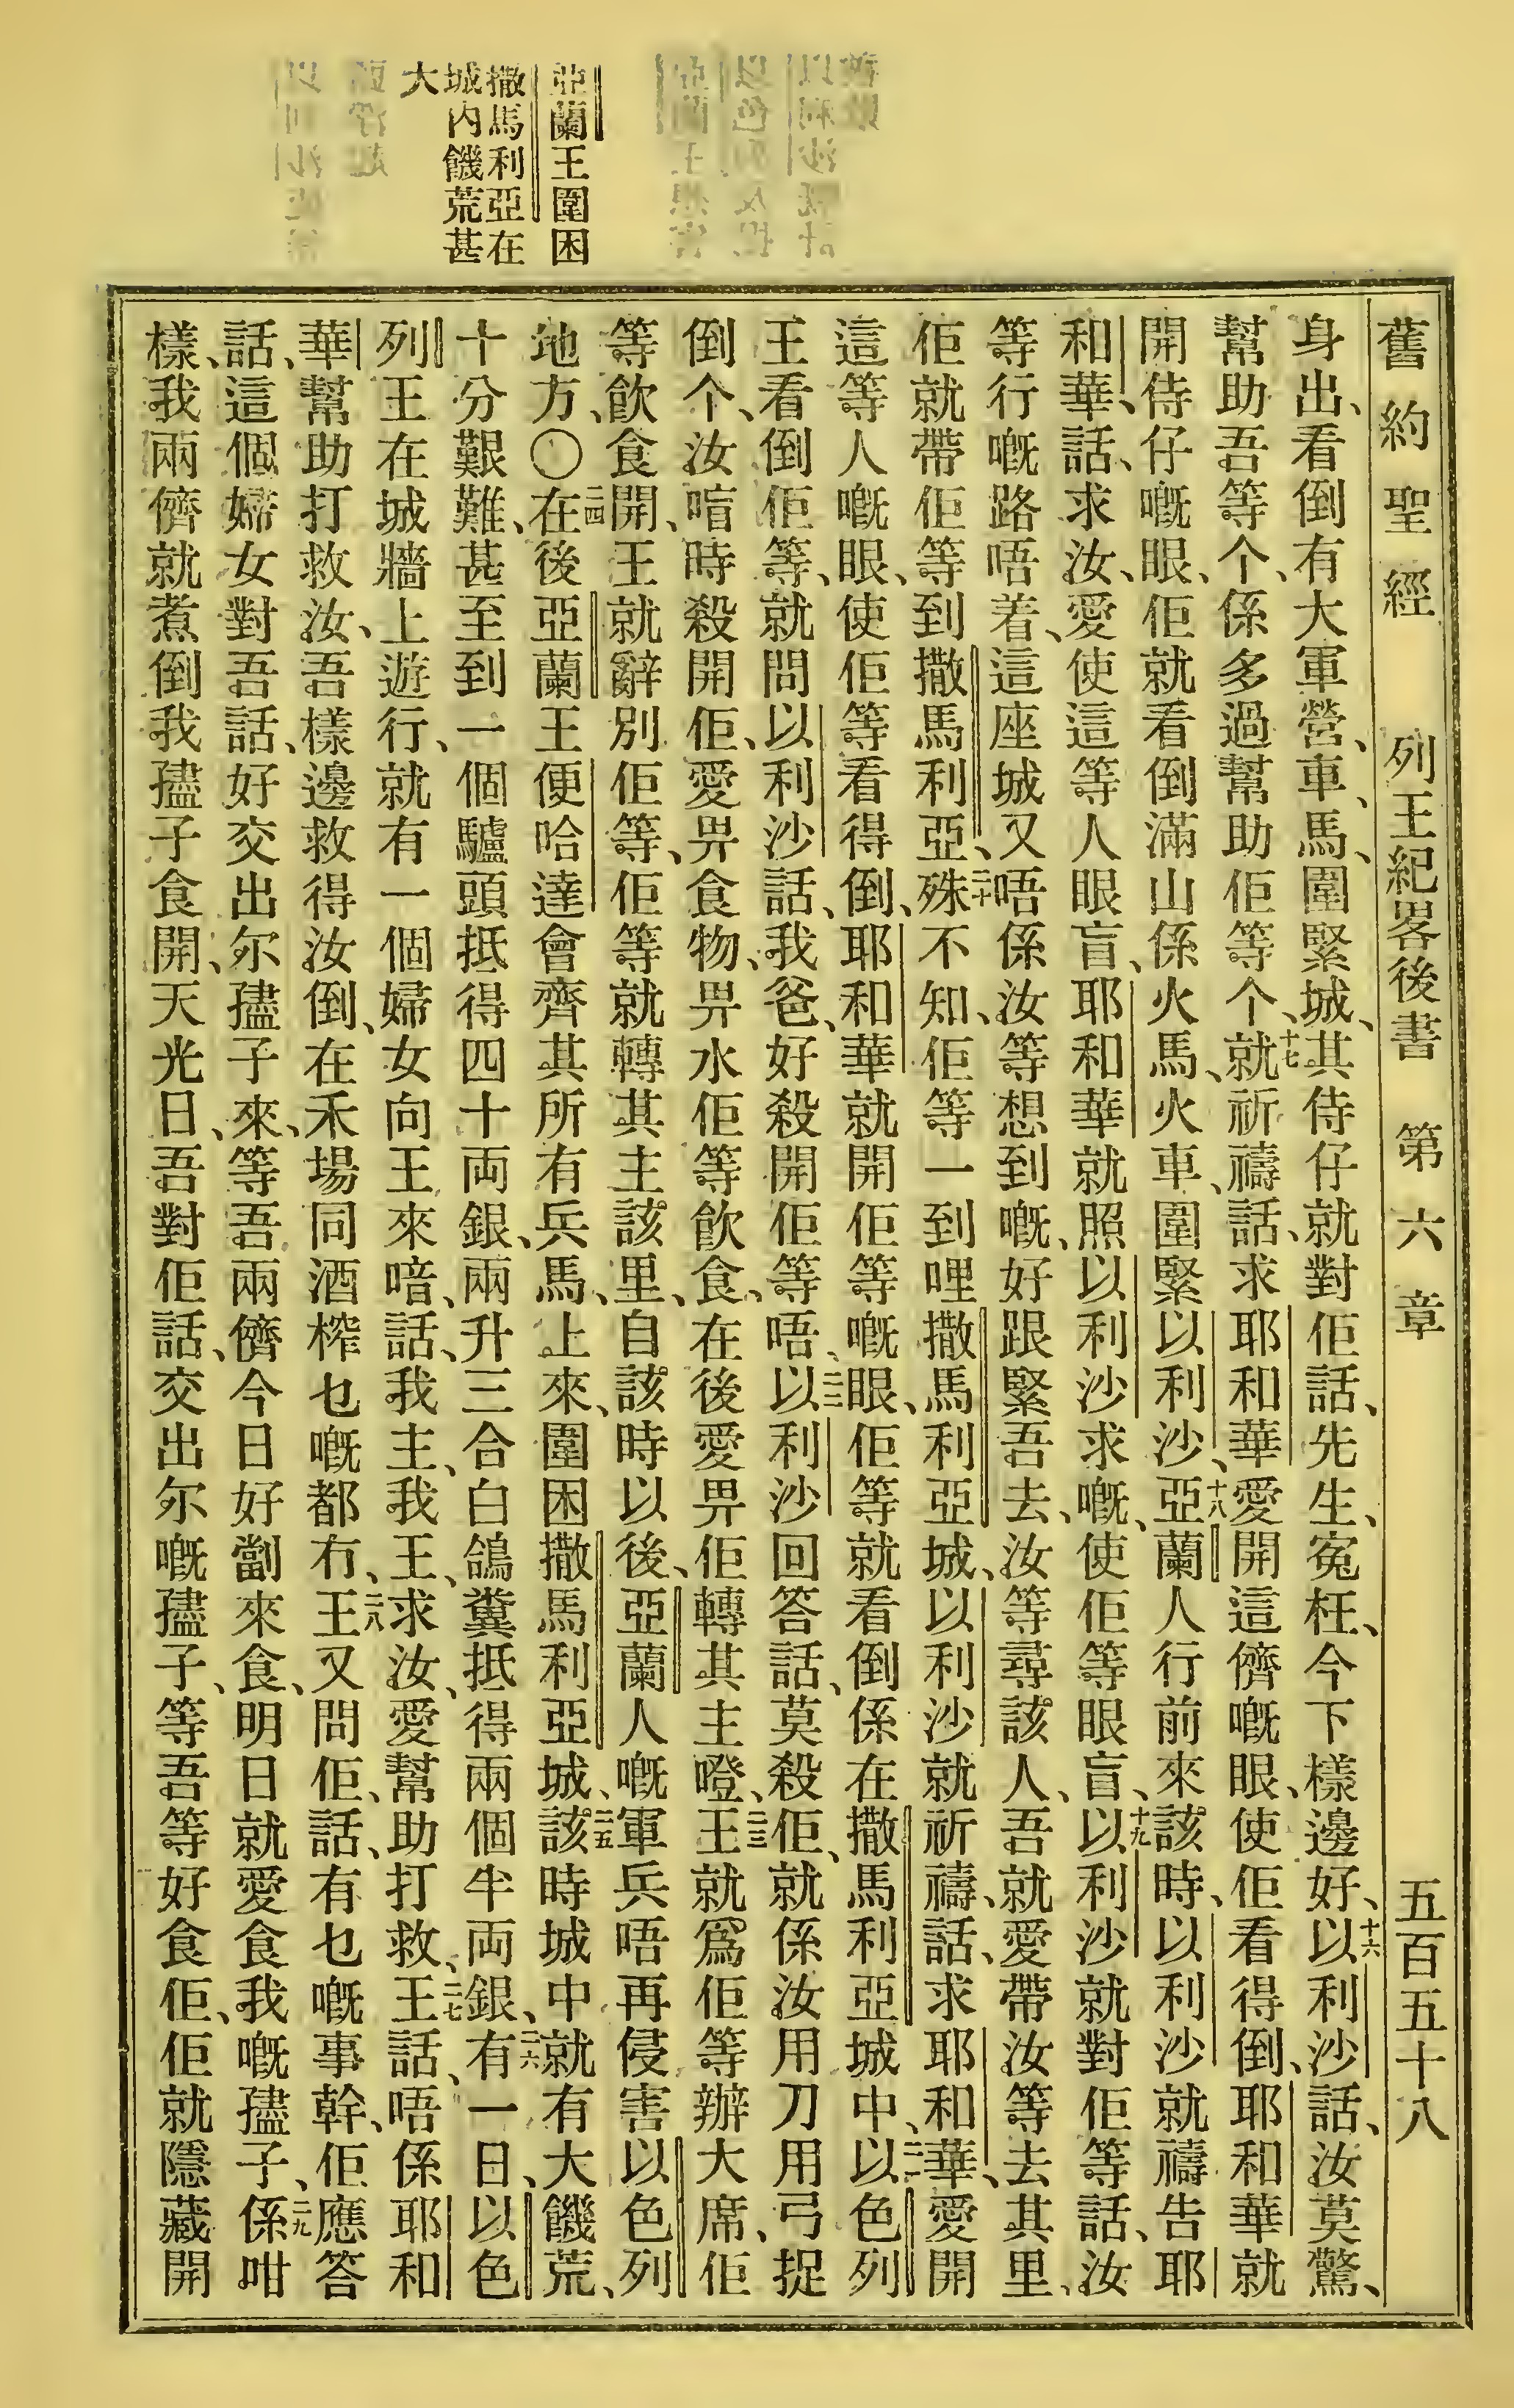 舊約聖經 列王紀畧後書 第六章 五百五十八
亞蘭王圍困
撒馬利亞在
城内饑荒甚
大
身出、看倒有大軍營、車、馬、圍緊城、其侍仔就對佢話、先生、寃枉、今下樣邊好、十六以利沙話、汝莫驚、
幫助吾等个、係多過幫助佢等个、十七就祈禱話、求耶和華愛開這儕嘅眼、使佢看得倒、耶和華就
開侍仔嘅眼、佢就看倒滿山係火馬、火車、圍緊以利沙、十八亞蘭人行前來該時、以利沙就禱告耶
和華、話、求汝、愛使這等人眼盲、耶和華就照以利沙求嘅、使佢等眼盲、十九以利沙就對佢等話、汝
等行嘅路唔着、這座城又唔係汝等想到嘅、好跟緊吾去、汝等尋該人、吾就愛帶汝等去其里、
佢就帶佢等到撒馬利亞、二十殊不知、佢等一到哩撒馬利亞城、以利沙就祈禱、話、求耶和華、愛開
這等人嘅眼、使佢等看得倒、耶和華就開佢等嘅眼、佢等就看倒係在撒馬利亞城中、二一以色列
王看倒佢等、就問以利沙話、我爸、好殺開佢等唔、二二以利沙回答話、莫殺佢、就係汝用刀用弓捉
倒个、汝喑時殺開佢、愛畀食物、畀水佢等飲食、在後愛畀佢轉其主噔、二三王就爲佢等辦大席、佢
等飲食開、王就辭別佢等、佢等就轉其主該里、自該時以後、亞蘭人嘅軍兵唔再侵害以色列
地方、〇二四在後亞蘭王便哈達會齊其所有兵馬、上來、圍困撒馬利亞城、二五該時城中就有大饑荒、
十分艱難、甚至到一個驢頭抵得四十両銀、兩升三合白鴿糞抵得兩個半両銀、二六有一日、以色
列王在城牆上遊行、就有一個婦女向王來喑、話、我主、我王、求汝、愛幫助打救、二七王話、唔係耶和
華幫助打救汝、吾樣邊救得汝倒、在禾場同酒榨乜嘅都冇、二八王又問佢、話、有乜嘅事幹、佢應答
話、這個婦女對吾話、好交出尔孻子來、等吾兩儕今日好劏來食、明日就愛食我嘅孻子、二九係咁
樣、我兩儕就煮倒我孻子食開、天光日、吾對佢話、交出尔嘅孻子、等吾等好食佢、佢就隱藏開